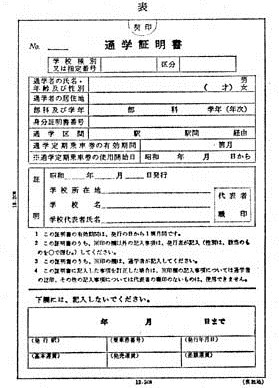 表
契印
No.
通学証明書
学校種別又は指定番号
区分
通学者の氏名・年齢及び性別
（　才）
男
女
通学者の居住地
部科及び学年
部　科　学年（年次）
身分証明書番号
通学区間
駅　駅間　経由
通学定期乗車券の有効期間
箇月
※通学定期乗車券の使用開始日
昭和　年　月　日から
証明
昭和　年　月　日発行
学校所在地
学校名
学校代表者氏名
代表者職印
1 この証明書の有効期間は、発行の日から1箇月間です。
2 この証明書のうち、※印の欄以外の記入事項は、発行者が記入（性別は、該当のものを○で囲む）してください。
3 この証明書のうち、※印の欄は、通学者が記入してください。
4 この証明書に記入した事項を訂正した場合は、※印欄の記入事項については通学者の証印、その他の記入事項については代表者の職印のないものは、使用できません。
下欄には、記入しないでください。
年　月　日まで
（発行駅）
（乗車券番号）
（発行年月日）
（基本運賃）
（発売運賃）
（差額運賃）